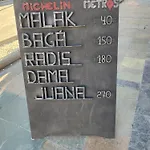 MICHELIN METROS
MALAK 40
BAGA 150
RADIS 180
DAMA
JUANA 270